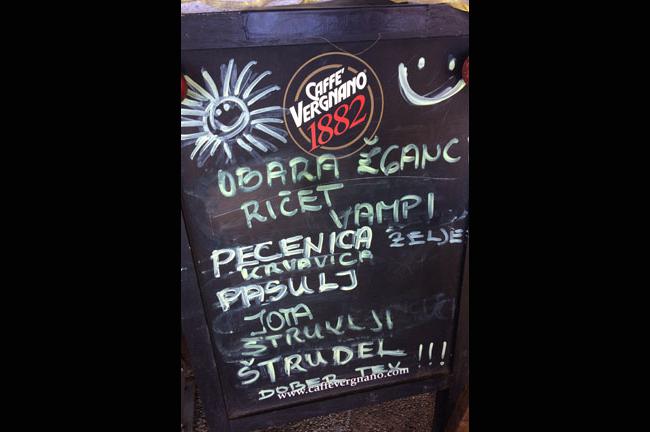 CAFFÈ
VERGNANO
1882
OBARA ŽGANC
RIČET
VAMPI
PEČENICA ŽELJE
KRVAVICA
PASULJ
JOTA
ŠTRUKLJI
ŠTRUDEL !!!
DOBER TEK
www.caffevergnano.com